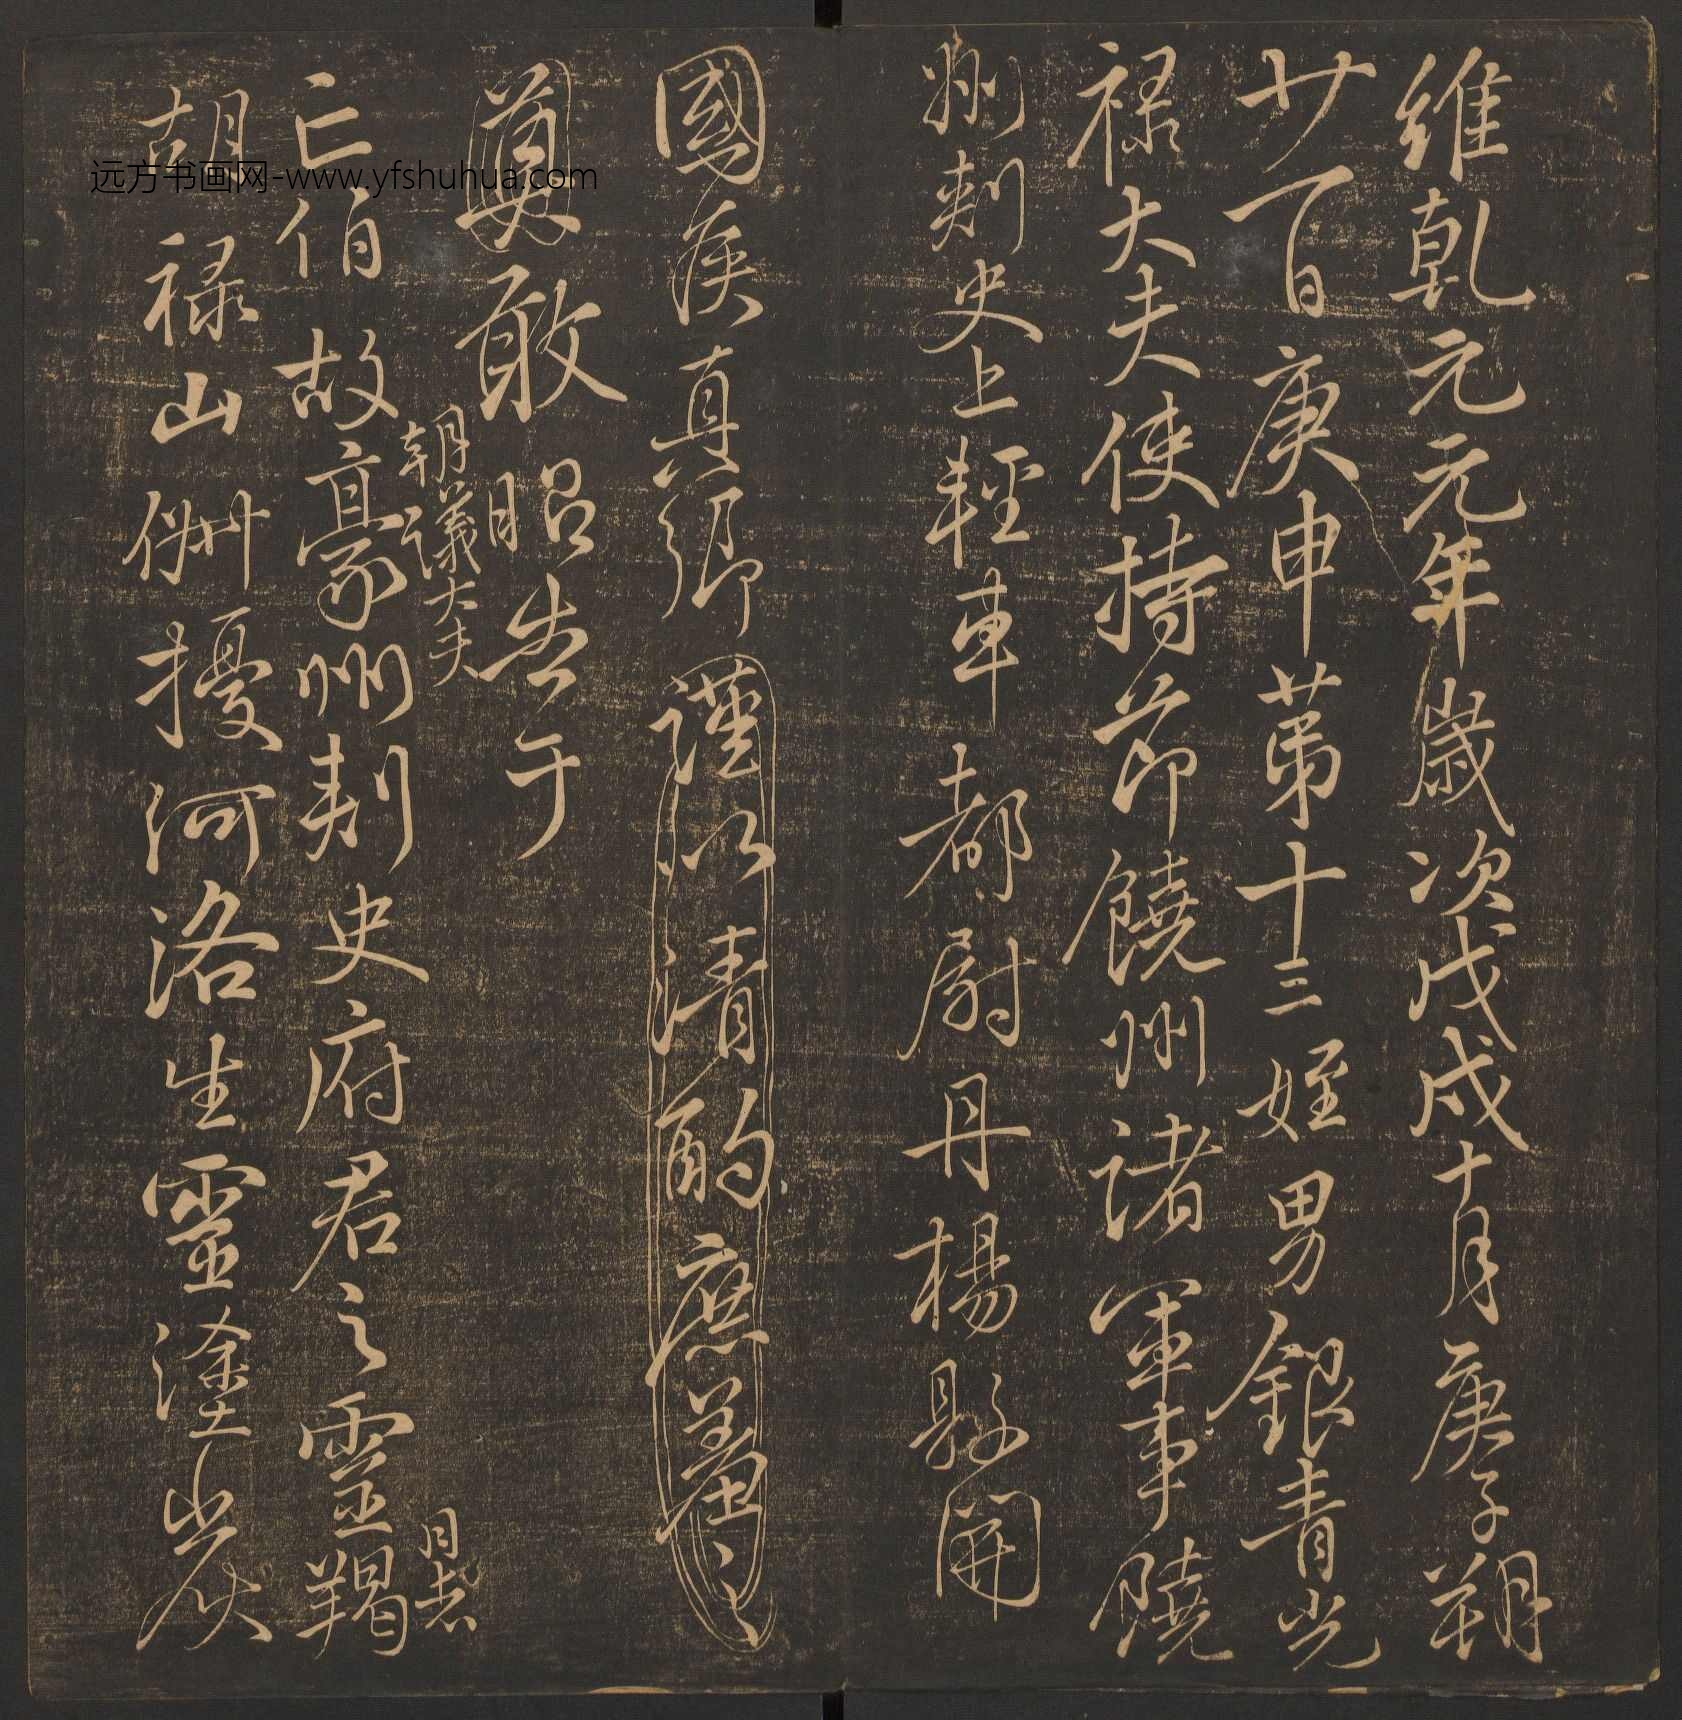 維乾元元年歲次戊戌十月庚子朔
廿一日庚申第十三姪男銀青光
禄大夫使持節饒州諸軍事饒
州刺史上輕車都尉丹楊縣開
國侯真卿謹以清酌庶羞之
奠敢昭告于
朝議大夫
日者
亡伯故豪州刺史府君之靈羯
胡禄山俶擾河洛生靈塗炭
远方书画网-www.yfshuhua.com